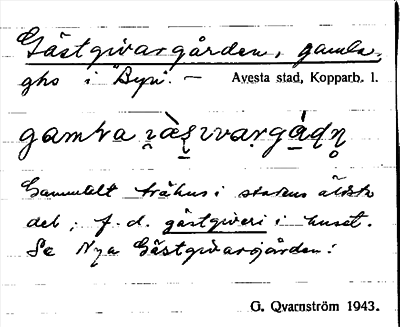 Gästgivargården, gamla,
gho i "Byn". — Avesta stad, Kopparb. l.
gamla
Gammalt trähus i stadens äldsta
del, f. d. gästgiveri i huset.
Se Nya Gästgivargården!
G. Qvarnström 1943.